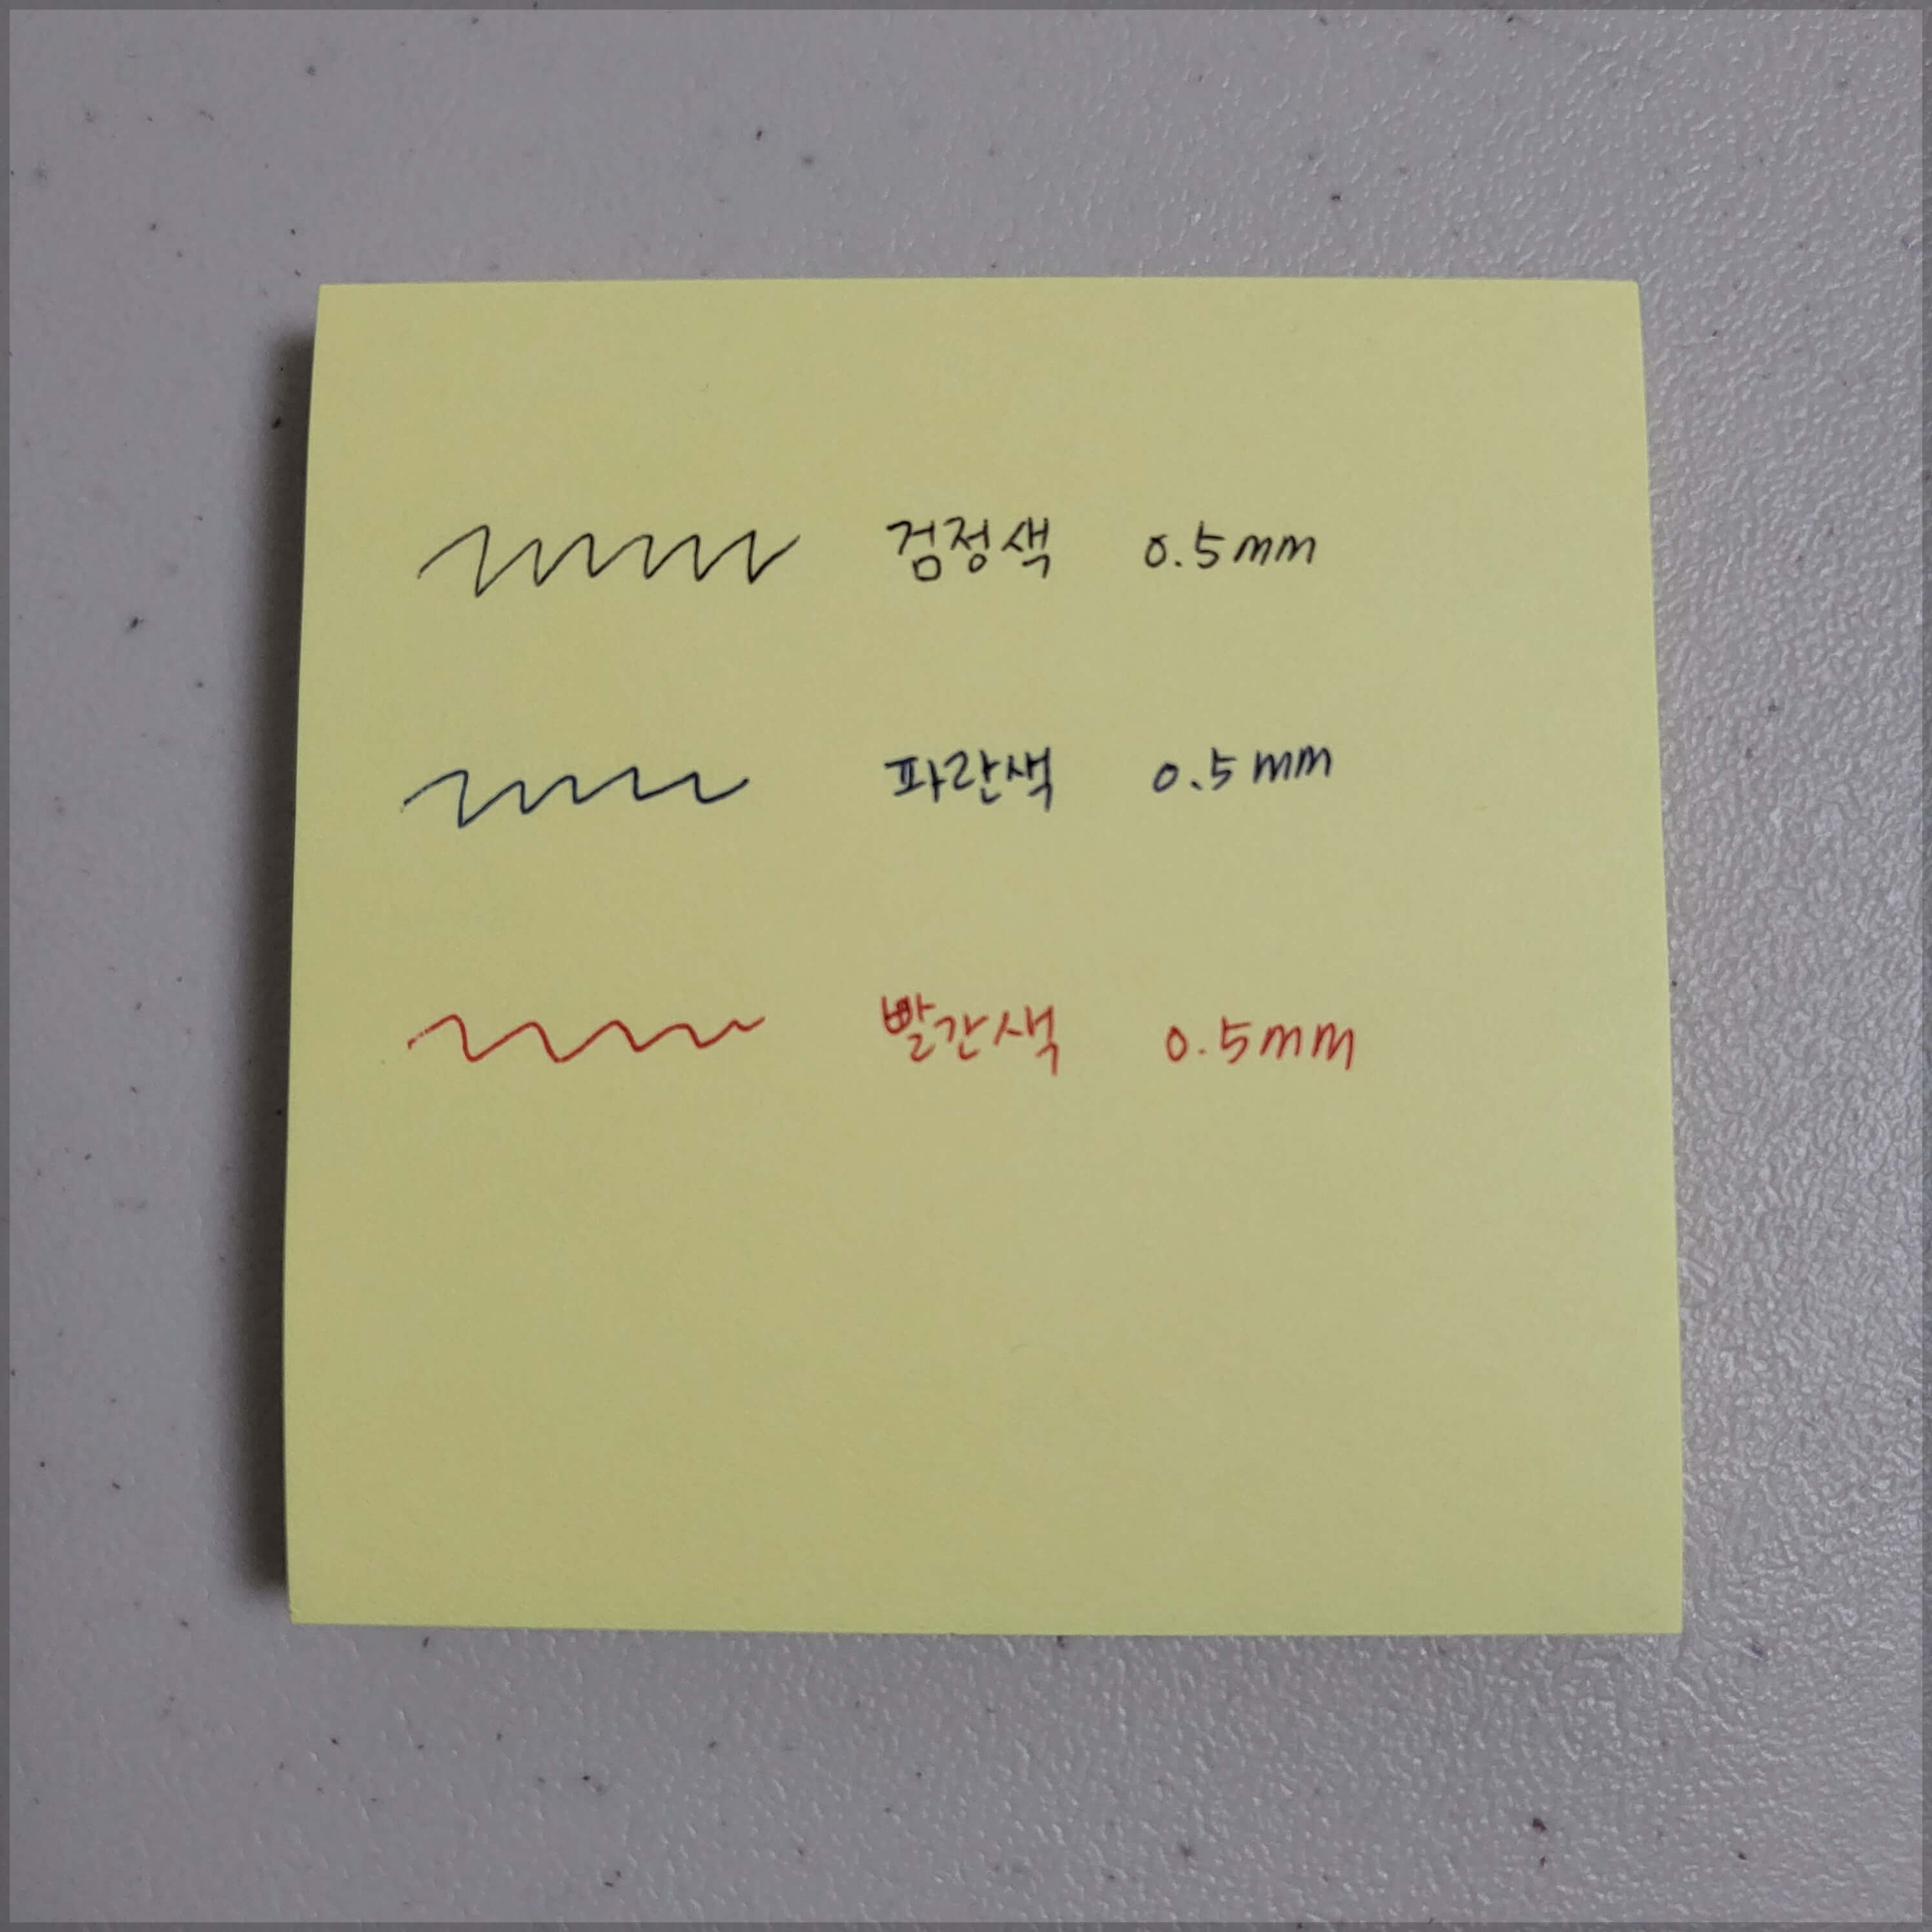 검정색 0.5mm
파란색 0.5mm
빨간색 0.5mm